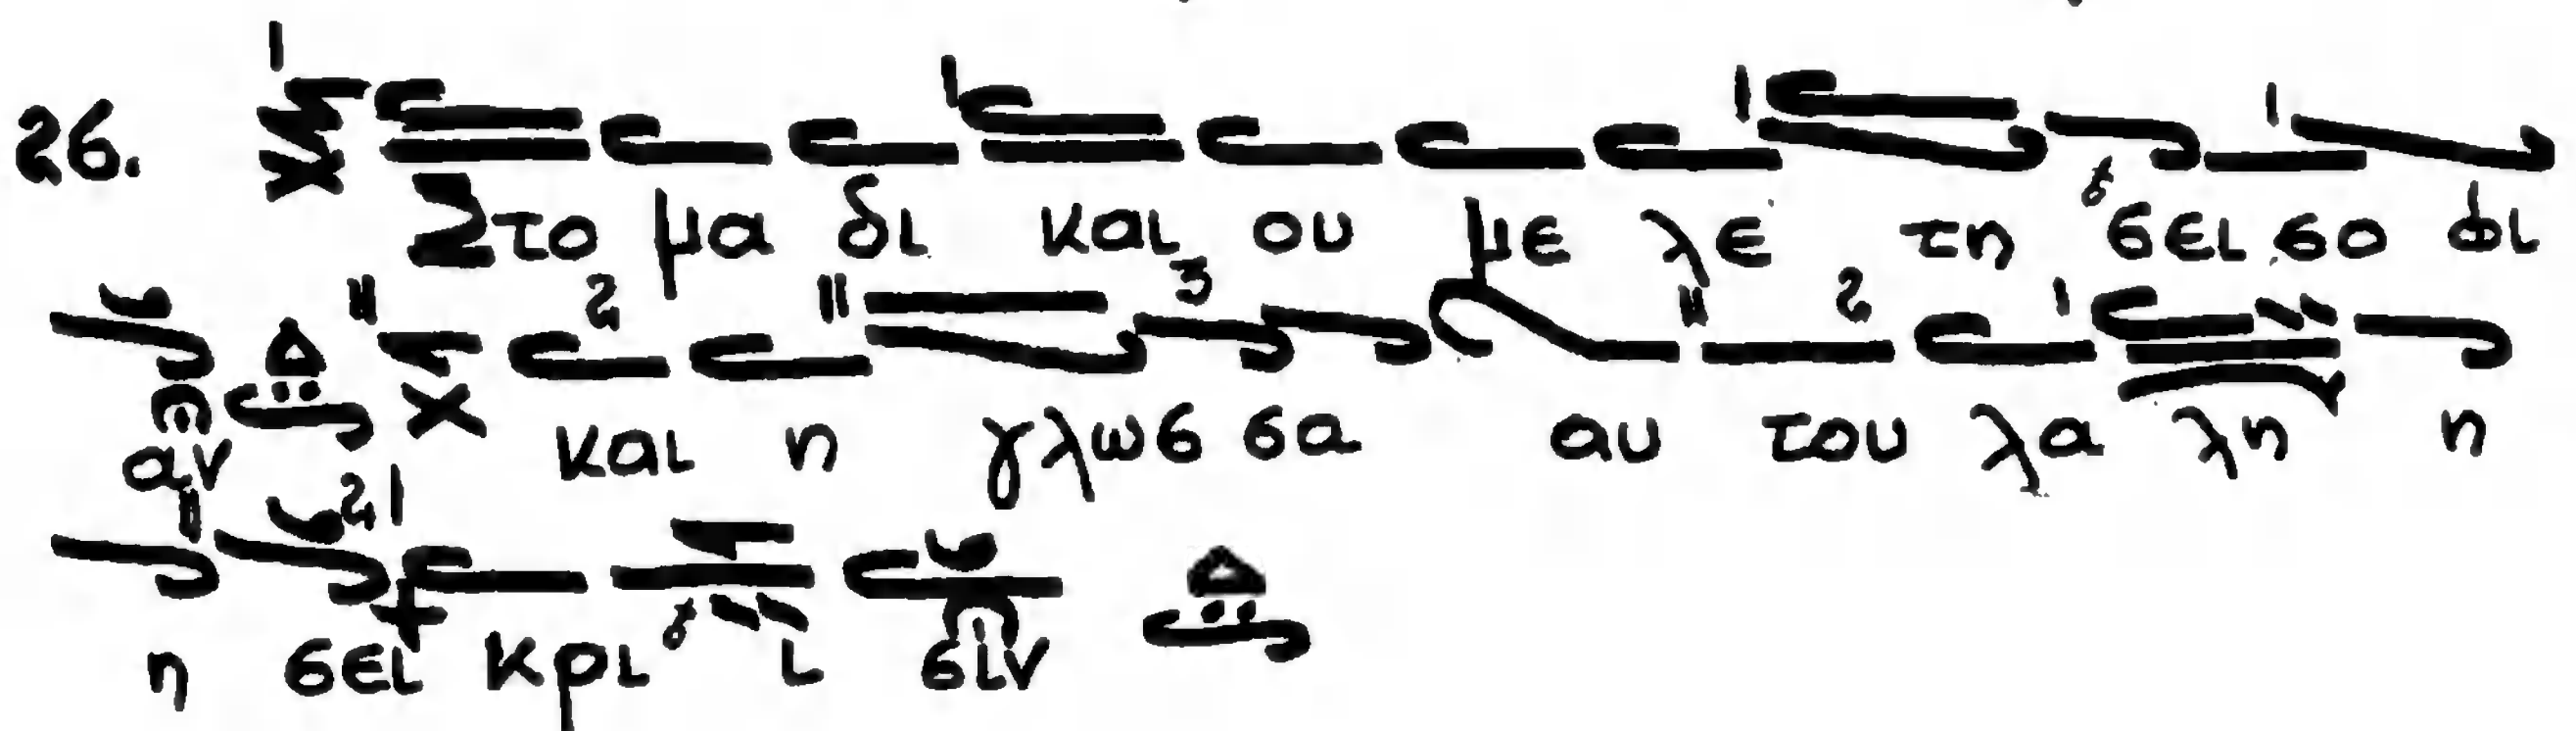 26. Στο μα δι και ου με λε τη σει σο φι
αν και η γλωσ σα αυ του λα λη η
η σει κρι ι σιν